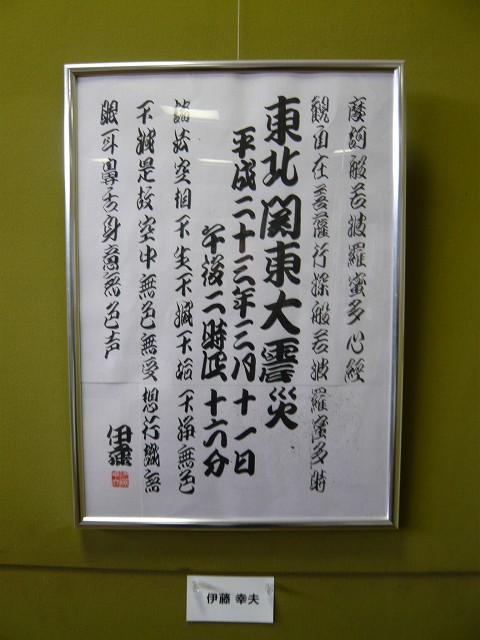 摩訶般若波羅蜜多心経
観自在菩薩行深般若波羅蜜多時
東北関東大震災
平成二十三年三月十一日
午後二時四十六分
諸法空相不生不滅不垢不浄無色
不滅是故空中無色無受想行識無
眼耳鼻舌身意無色声
伊藤 幸夫